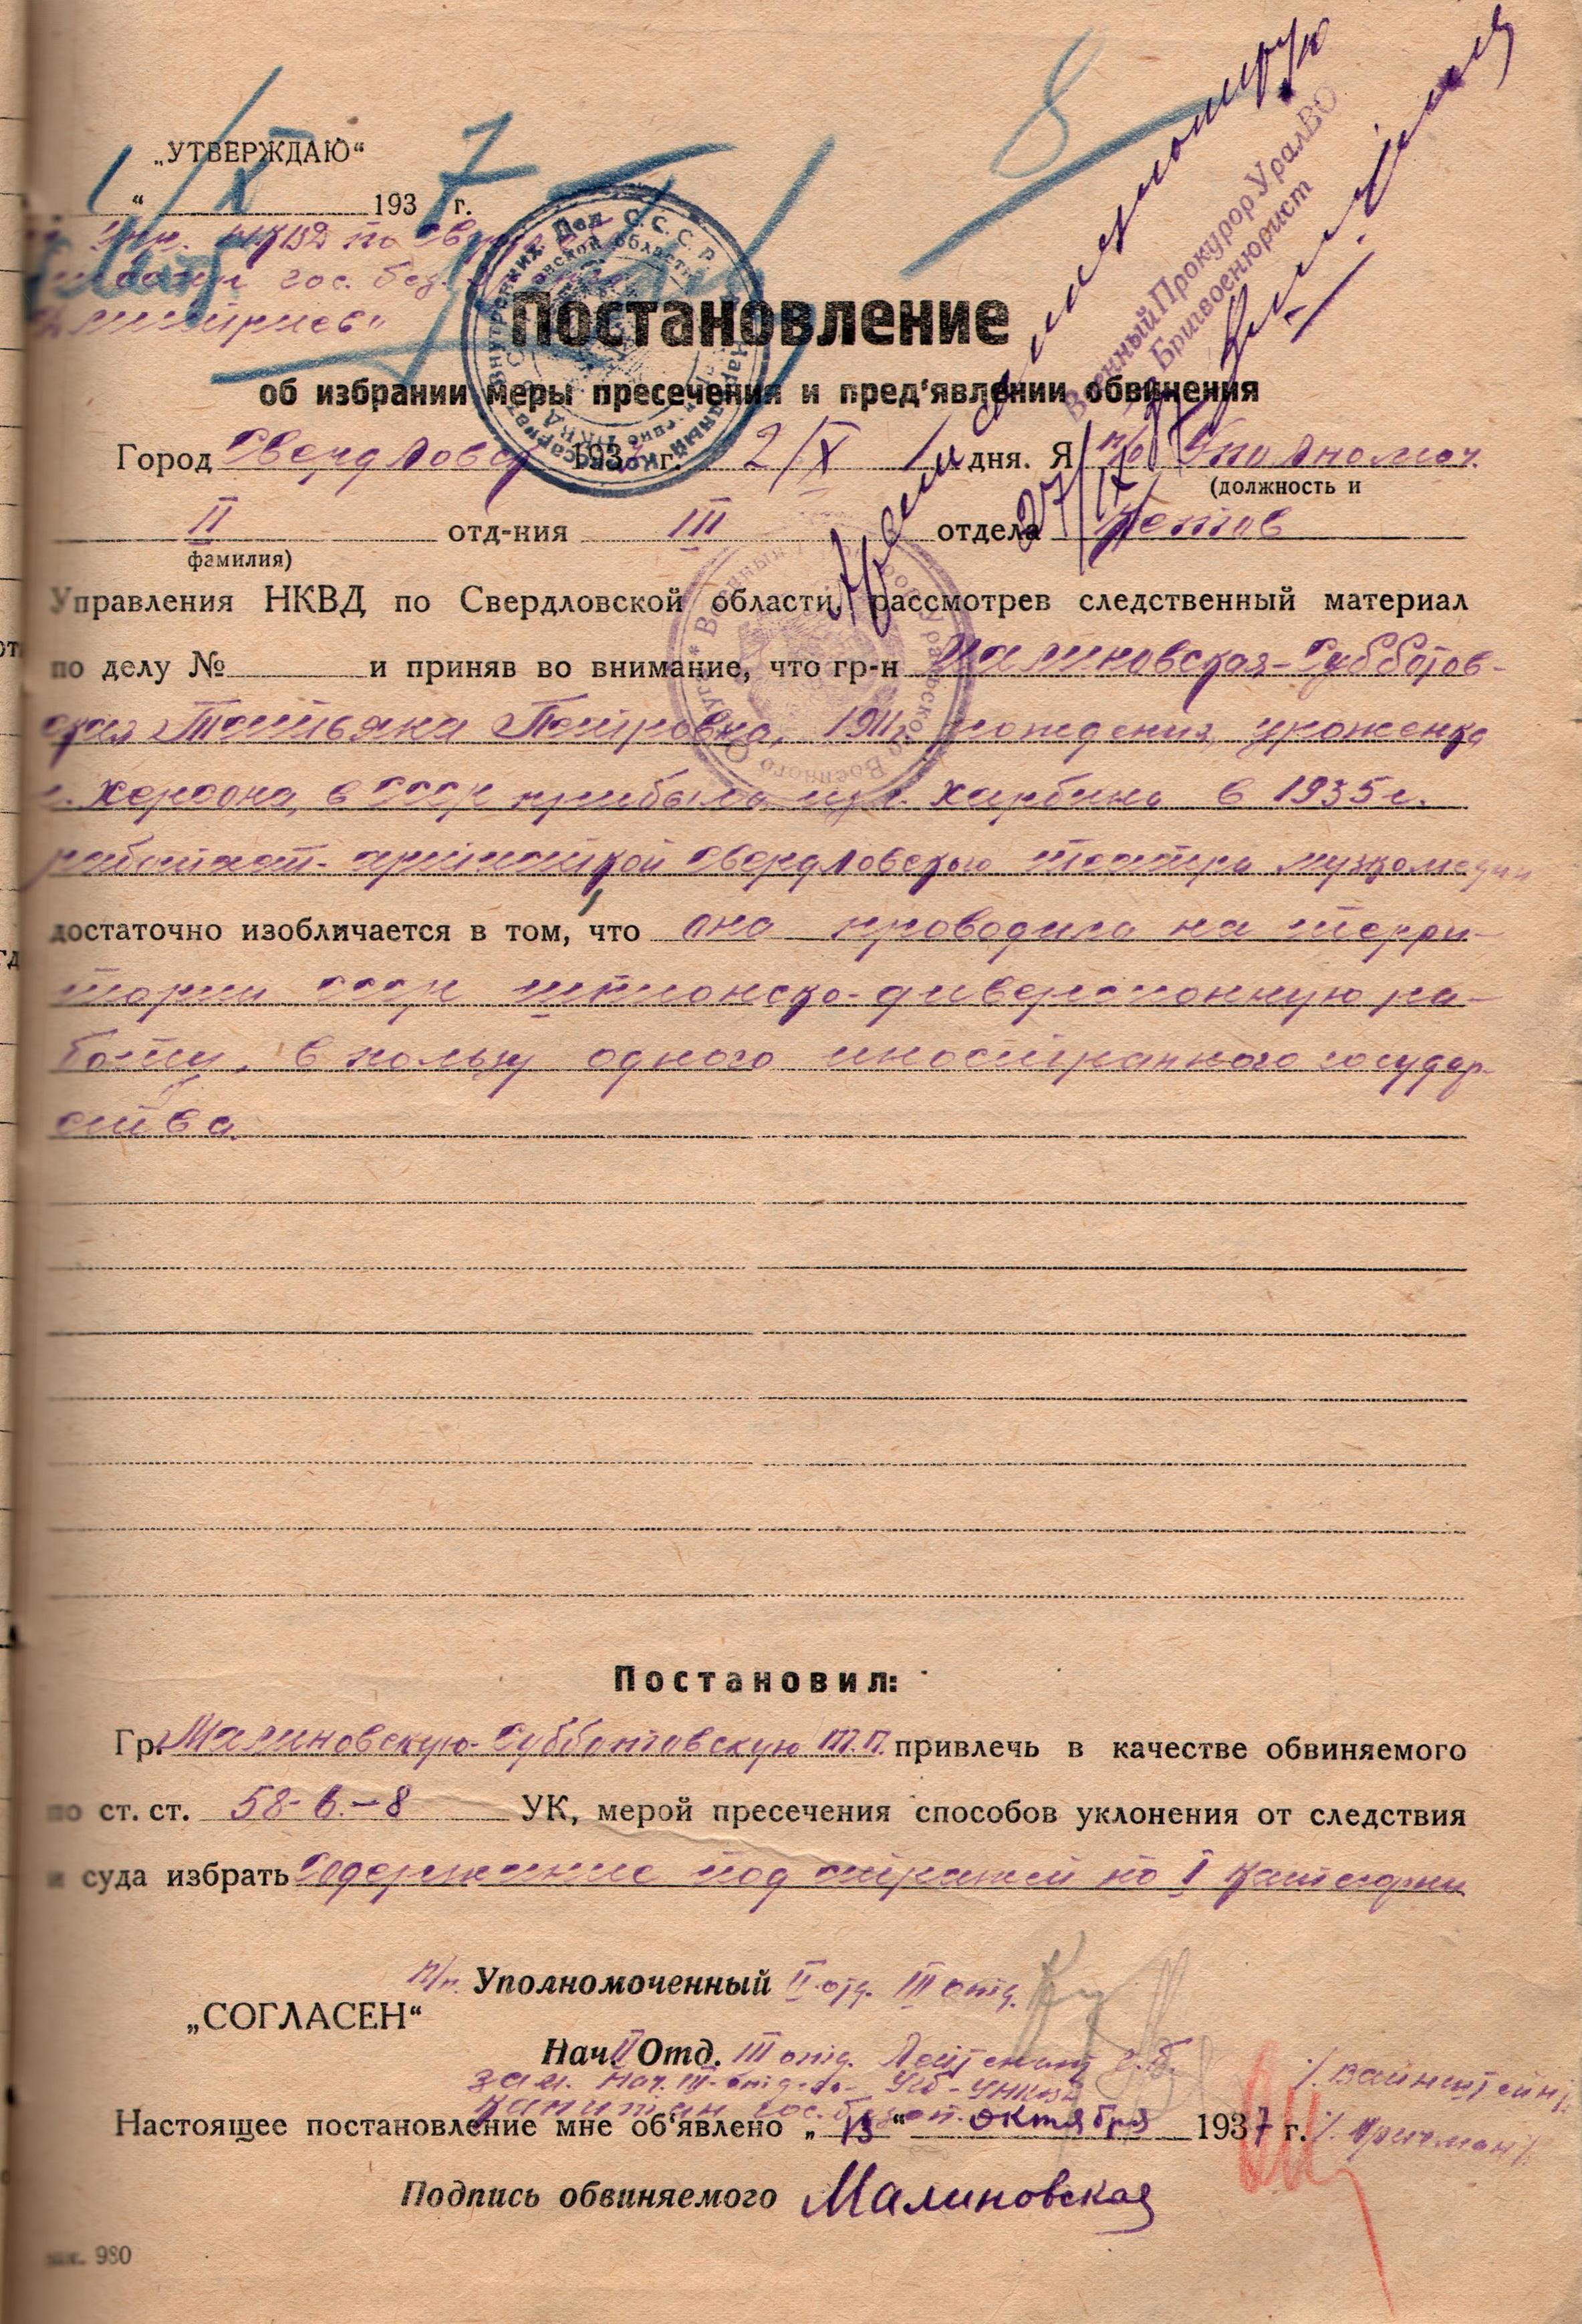 8
„УТВЕРЖДАЮ“
1/X 1937 г.
Упр. НКВД по
гос. без.
Дмитриев“
Военный Прокурор УралВО
Бригвоенюрист
Постановление
об избрании меры пресечения и пред‘явлении обвинения
Город Свердловск 1937 г. 2/X дня. Я п/о Уполномоч.
(должность и
II отд-ния III отдела
фамилия)
Управления НКВД по Свердловской области, рассмотрев следственный материал
по делу № и приняв во внимание, что гр-н Малиновская-Субботов-
ская Татьяна Петровна, 1911г. рождения, уроженка
г. Херсона, в СССР прибыла из г. Харбина в 1935г.
работает-артисткой Свердловского театра музкомедии
достаточно изобличается в том, что она проводила на терри-
тории СССР шпионско-диверсионную ра-
боту, в пользу одного иностранного государ-
ства.
Постановил:
Гр. Малиновскую-Субботовскую Т.П. привлечь в качестве обвиняемого
по ст. ст. 58-6.-8 УК, мерой пресечения способов уклонения от следствия
и суда избрать Содержание под стражей по I категории
П/п. Уполномоченный II отд. III отд.
„СОГЛАСЕН“
Нач. II Отд. III отд. Лейтенант г.б. /Вайнштейн/
зам. Нач. III-отд-ла-УГБ-УНКВД
капитан гос. безоп. /Кричман/
Настоящее постановление мне об‘явлено „13“ октября 1937 г.
Подпись обвиняемого Малиновская
зак. 980